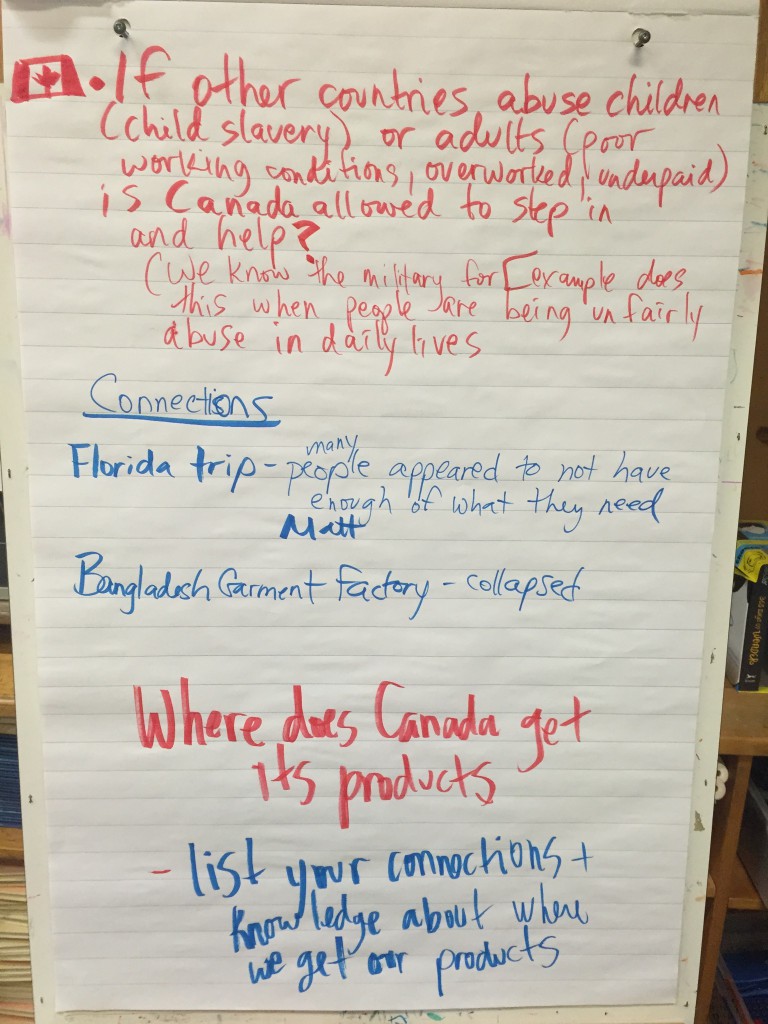 • If other countries abuse children
(child slavery) or adults (poor
working conditions, overworked, underpaid)
is Canada allowed to step in
and help?
(We know the military for [example does
this when people are being unfairly
abuse in daily lives
Connections
Florida trip - many people appeared to not have
enough of what they need
Matt
Bangladesh Garment Factory - collapsed
Where does Canada get
its products
- list your connections +
knowledge about where
we get our products